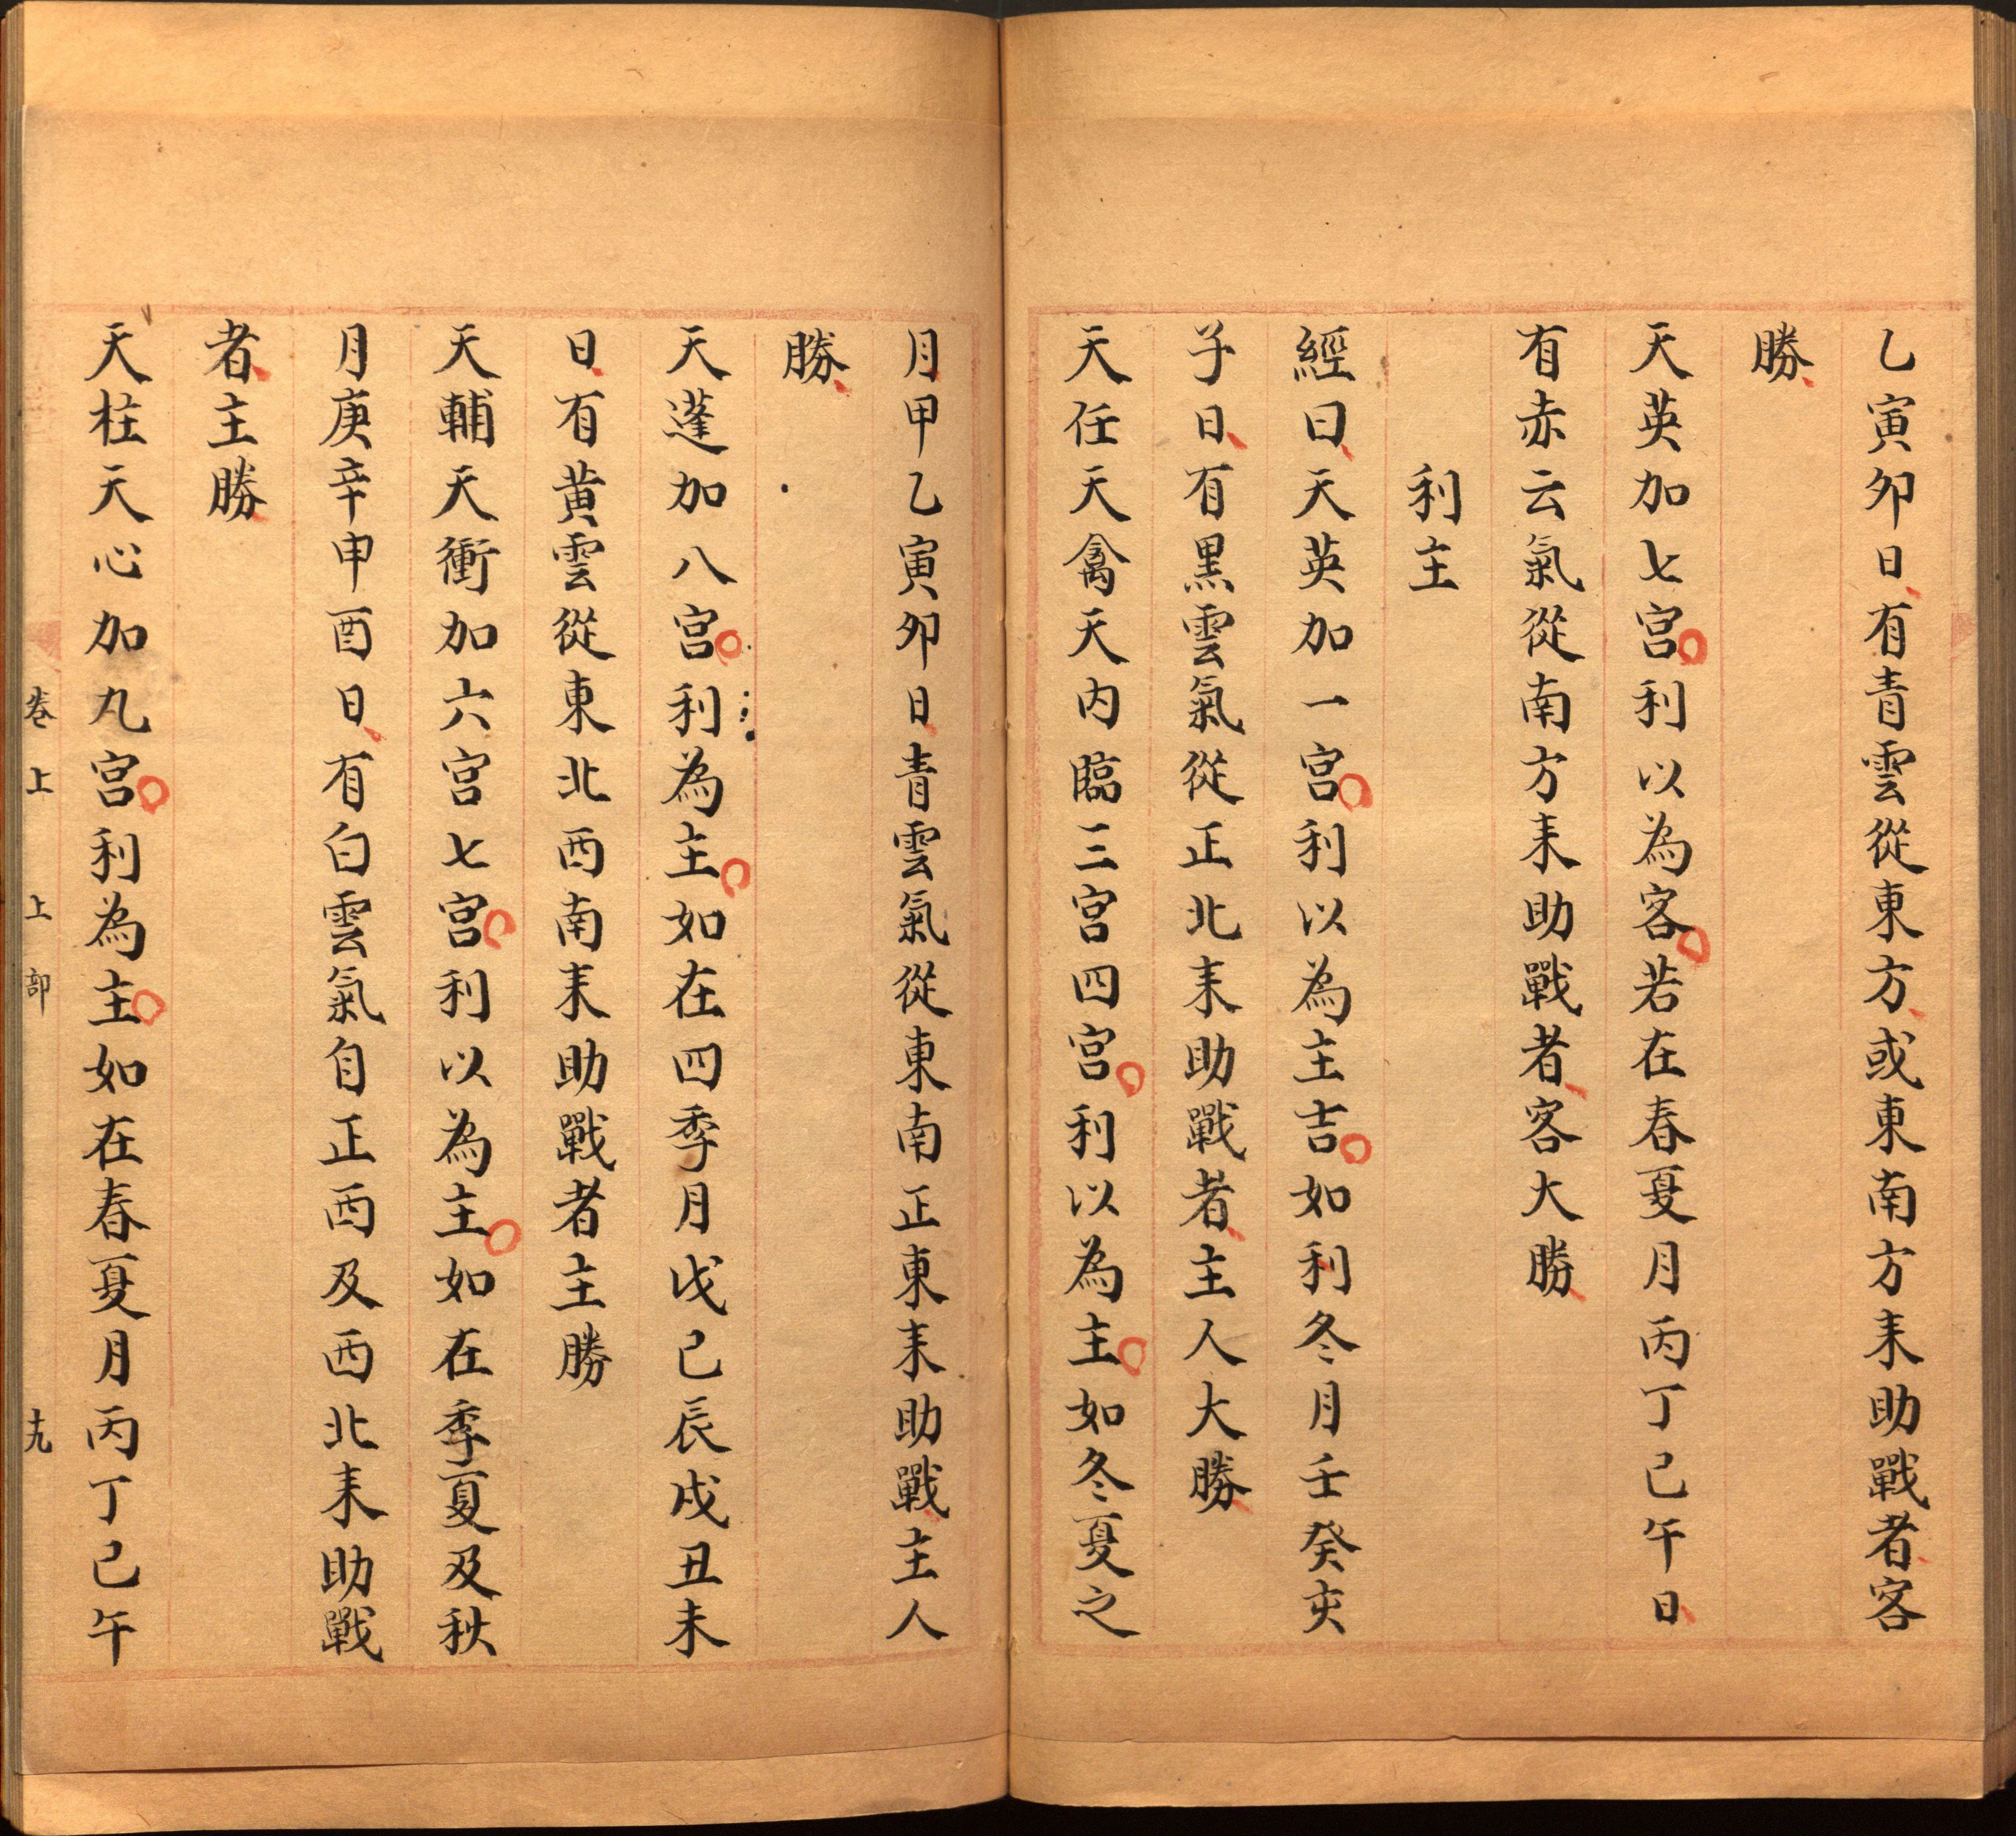 乙寅卯日有青雲從東方或東南方耒助戰者客
勝
天英加七宮利以為客若在春夏月丙丁巳午日
有赤云氣從南方耒助戰者客大勝
利主
經曰天英加一宮利以為主吉如利冬月壬癸亥
子日有黑雲氣從正北耒助戰者主人大勝
天任天禽天內臨三宮四宮利以為主如冬夏之
月甲乙寅卯日青雲氣從東南正東耒助戰主人
勝
天蓬加八宮利為主如在四季月戊己辰戌丑未
日有黃雲從東北西南耒助戰者主勝
天輔天衝加六宮七宮利以為主如在季夏及秋
月庚辛申酉日有白雲氣自正西及西北耒助戰
者主勝
天柱天心加九宮利為主如在春夏月丙丁巳午
卷上 上部 十九